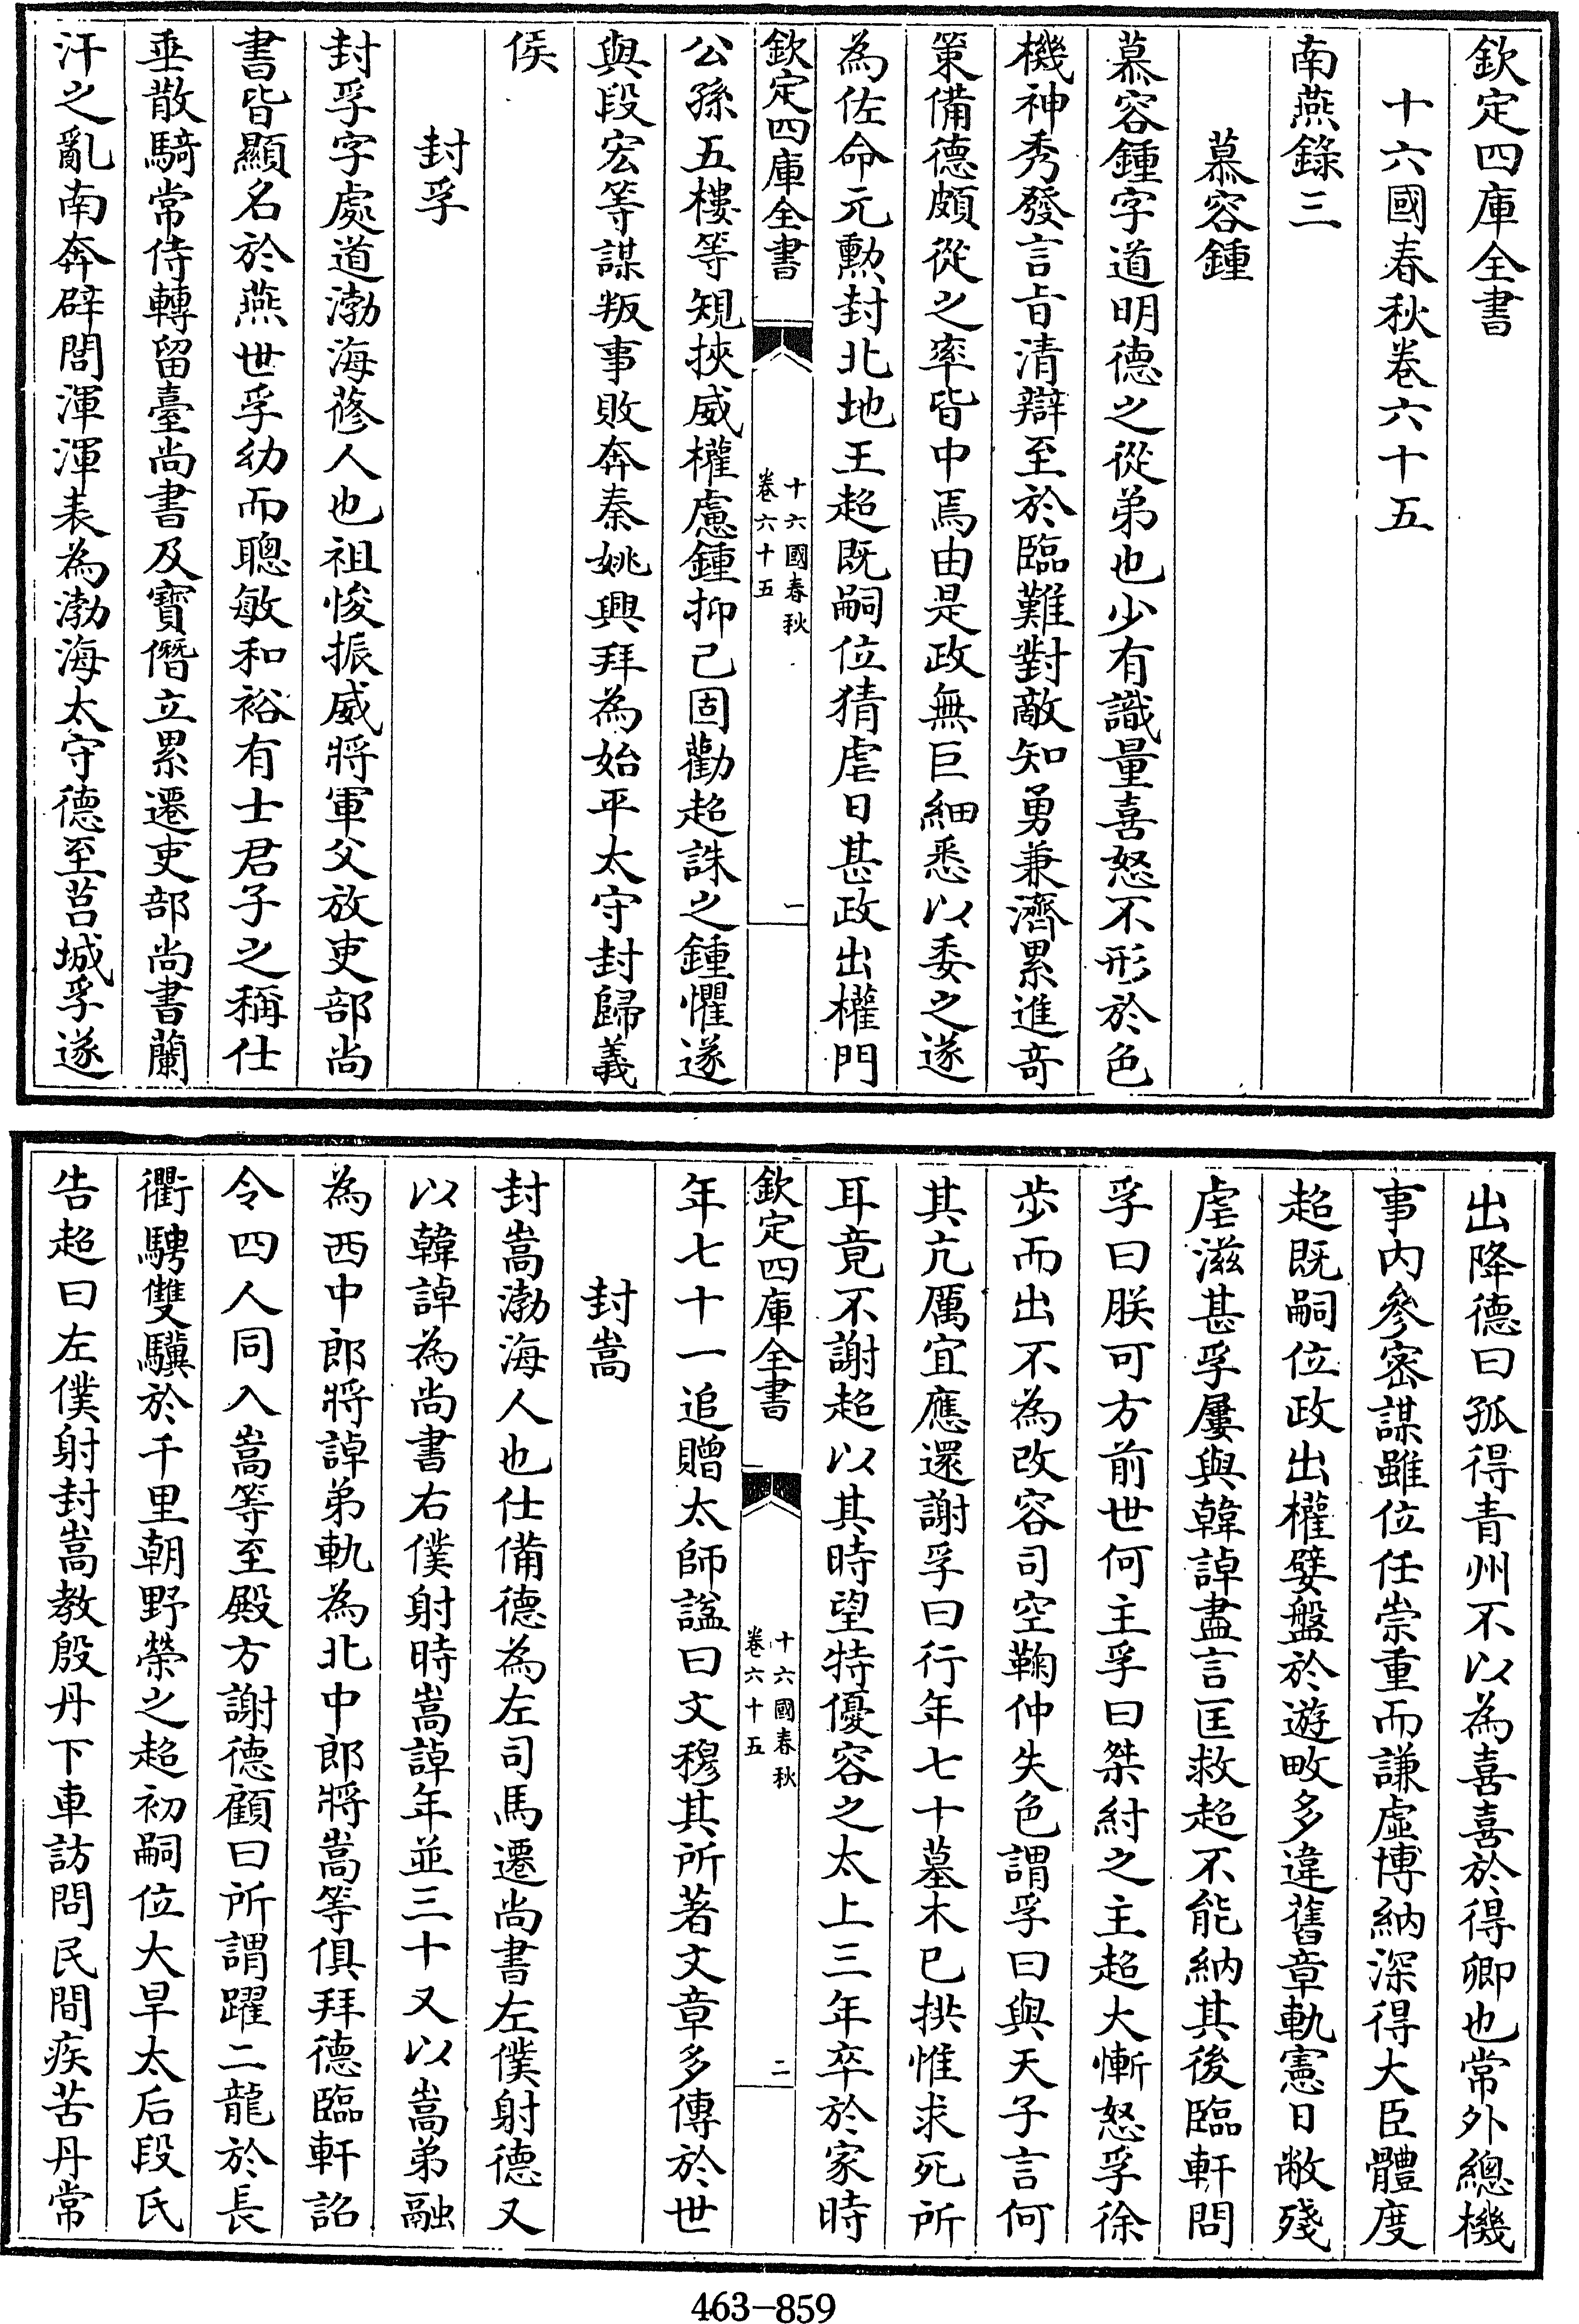 欽定四庫全書
十六國春秋卷六十五
南燕錄三
慕容鍾
慕容鍾字道明德之從弟也少有識量喜怒不形於色
機神秀發言㫖清辯至於臨難對敵知勇兼濟累進竒
策備德頗從之率皆中焉由是政無巨細悉以委之遂
為佐命元勲封北地王超既嗣位猜虐日甚政出權門
欽定四庫全書
十六國春秋
卷六十五
一
公孫五樓等規挾威權慮鍾抑己固勸超誅之鍾懼遂
與段宏等謀叛事敗奔秦姚興拜為始平太守封歸義
侯
封孚
封孚字處道渤海蓨人也祖悛振威將軍父放吏部尚
書皆顯名於燕世孚幼而聰敏和裕有士君子之稱仕
垂散騎常侍轉留臺尚書及寶僭立累遷吏部尚書蘭
汗之亂南奔辟閭渾渾表為渤海太守德至莒城孚遂
出降德曰孤得青州不以為喜喜於得卿也常外總機
事内參密謀雖位任崇重而謙虚博納深得大臣體度
超既嗣位政出權嬖盤於遊畋多違舊章軌憲日敝殘
虐滋甚孚屢與韓𧨳盡言匡救超不能納其後臨軒問
孚曰朕可方前世何主孚曰桀紂之主超大慚怒孚徐
歩而出不為改容司空鞠仲失色謂孚曰與天子言何
其亢厲宜應還謝孚曰行年七十墓木已拱惟求死所
耳竟不謝超以其時望特優容之太上三年卒於家時
欽定四庫全書
十六國春秋
卷六十五
二
年七十一追贈太師諡曰文穆其所著文章多傳於世
封嵩
封嵩渤海人也仕備德為左司馬遷尚書左僕射德又
以韓𧨳為尚書右僕射時嵩𧨳年並三十又以嵩弟融
為西中郎將𧨳弟軌為北中郎將嵩等俱拜德臨軒詔
令四人同入嵩等至殿方謝德顧曰所謂躍二龍於長
衢騁雙驥於千里朝野榮之超初嗣位大旱太后段氏
告超曰左僕射封嵩教殷丹下車訪問民間疾苦丹常
463-859